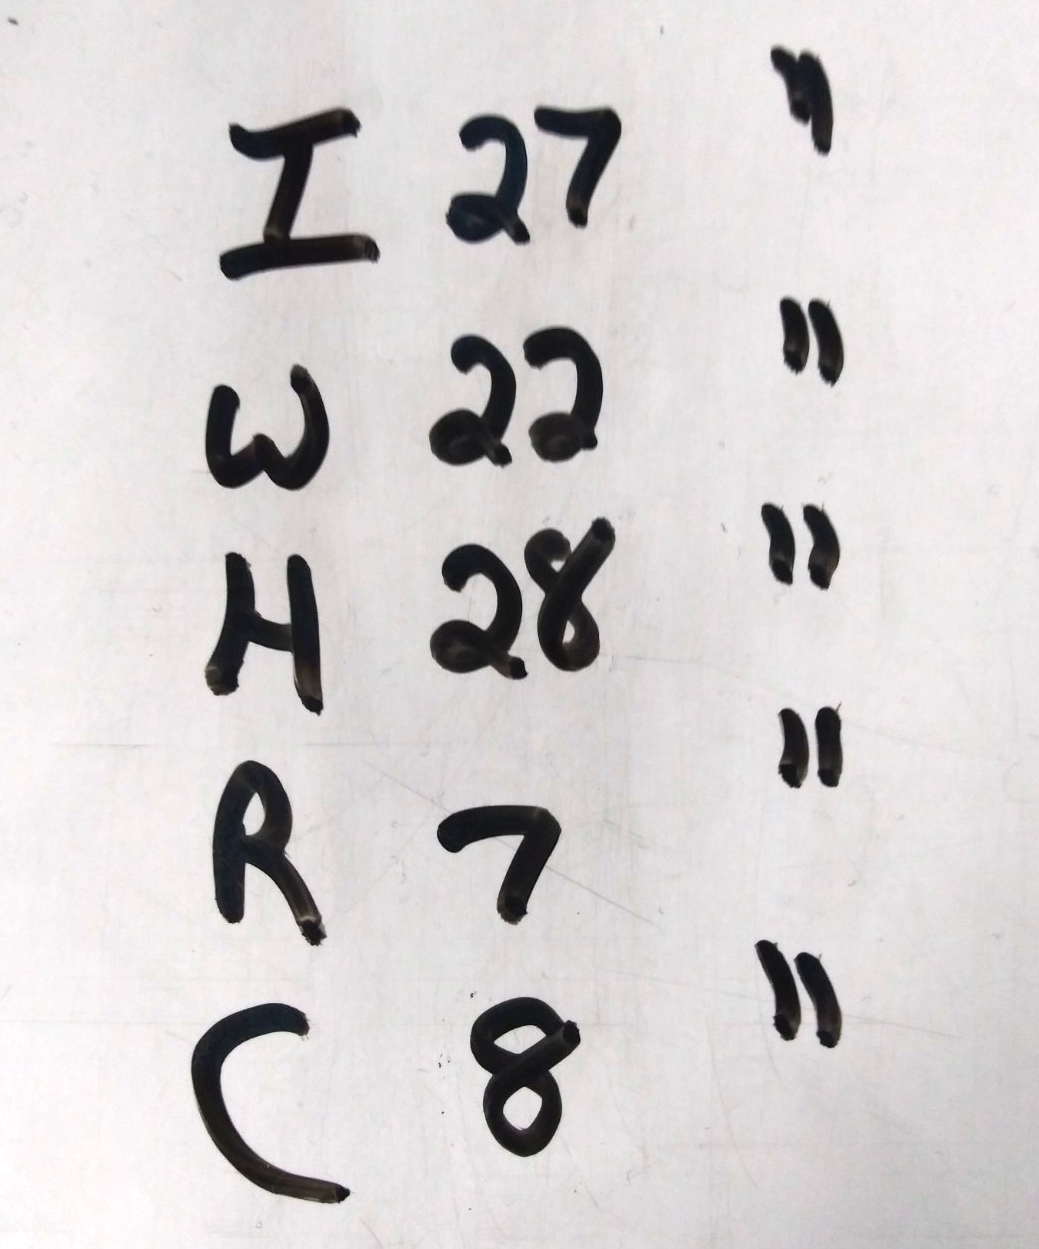 I 27 "
W 22 "
H 28 "
R 7 "
C 8 "